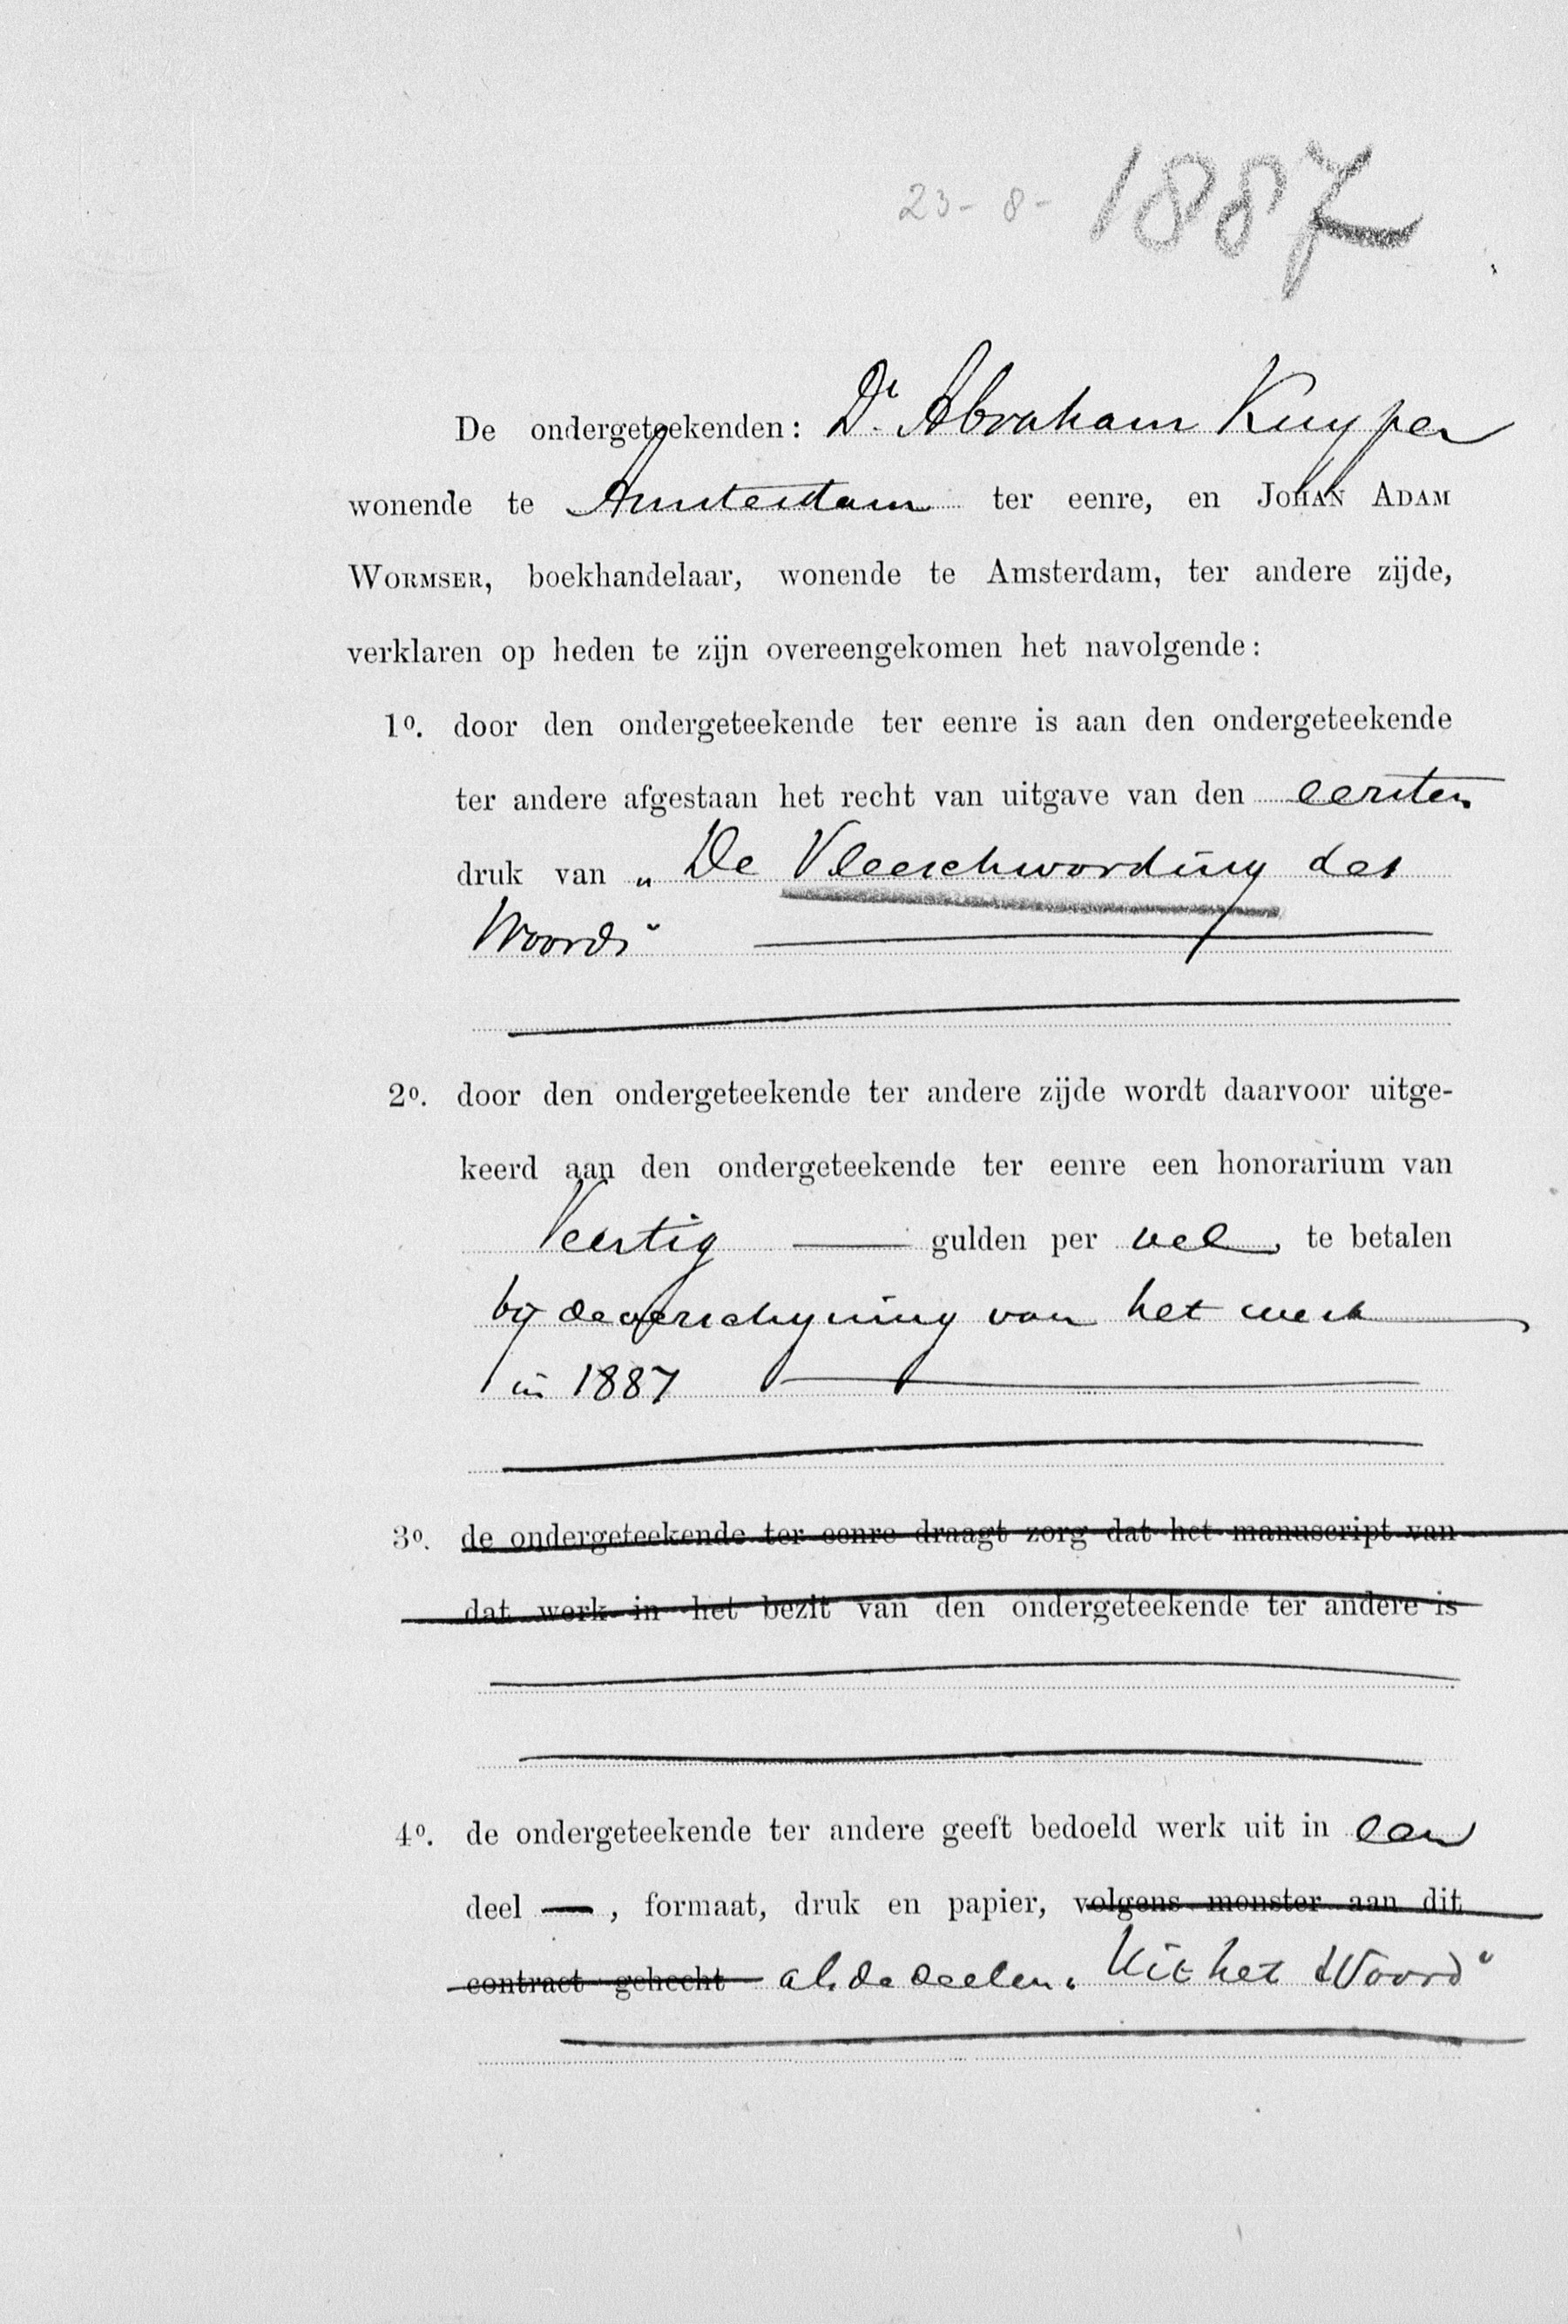 23-8-1887
De ondergeteekenden: Dr. Abraham Kuyper
wonende te Amsterdam ter eenre, en Johan Adam
Wormser, boekhandelaar, wonende te Amsterdam, ter andere zijde,
verklaren op heden te zijn overeengekomen het navolgende:
1o. door den ondergeteekende ter eenre is aan den ondergeteekende
ter andere afgestaan het recht van uitgave van den eersten
druk van „De Vleeschwording des
Woords"
2o. door den ondergeteekende ter andere zijde wordt daarvoor uitge-
keerd aan den ondergeteekende ter eenre een honorarium van
Veertig gulden per vel, te betalen
bij de verschijning van het werk
in 1887
3o. de ondergeteekende ter eenre draagt zorg dat het manuscript van
dat werk in het bezit van den ondergeteekende ter andere is
4o. de ondergeteekende ter andere geeft bedoeld werk uit in een
deel —, formaat, druk en papier, volgens monster aan dit
contract gehecht als de deelen „Uit het Woord"